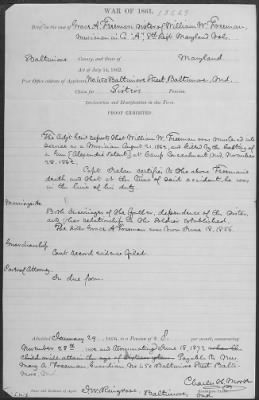 WAR OF 1861.
Brief in the case of Grace A. Freeman, sister of William W. Freeman,
Musician in Co "A", 8th Regt Maryland Vols.
Baltimore County, and State of Maryland
Act of July 14, 1862.
Post Office address of Applicant: No 450 Baltimore Street, Baltimore, Md.
Claim for Sister's Pension
Declaration and Identification in Due Form.
PROOF EXHIBITED
The Adjt Genl reports that William W. Freeman was enrolled into
service as a Musician August 21, 1862, and killed by the
a Gun at Camp November
28, 1862.
Capt. certifies to the above Freeman's
death and that at the time of said accident he was
in the line of his duty.
Marriage &c
Both of the Soldier, dependence of the sister,
and her relationship to the Soldier established.
The Grace A. Freeman was born June 18, 1856.
Guardianship
Court record evidence filed.
Power of Attorney.
In due form.
Admitted January 29 to a Pension of $ 8. per month, commencing
November 28th and terminating June 18, 1872
child will attain the age of Payable to Mrs.
Mary A. Freeman, Guardian No 450 Baltimore Street Balti-
more
Baltimore,
Md